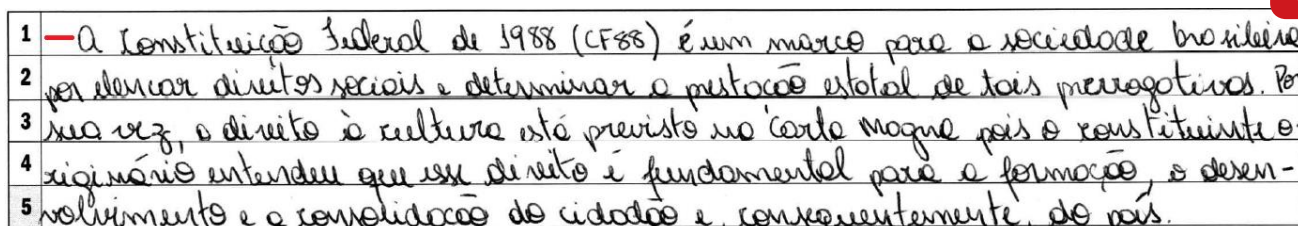 1 A Constituição Federal de 1988 (CF88) é um marco para a sociedade brasileira
2 por elencar direitos sociais e determinar a prestação estatal de tais prerrogativas. Por
3 sua vez, o direito à cultura está previsto na carta magna pois o constituinte o-
4 riginário entendeu que esse direito é fundamental para a formação, o desen-
5 volvimento e a consolidação do cidadão e, consequentemente, do país.